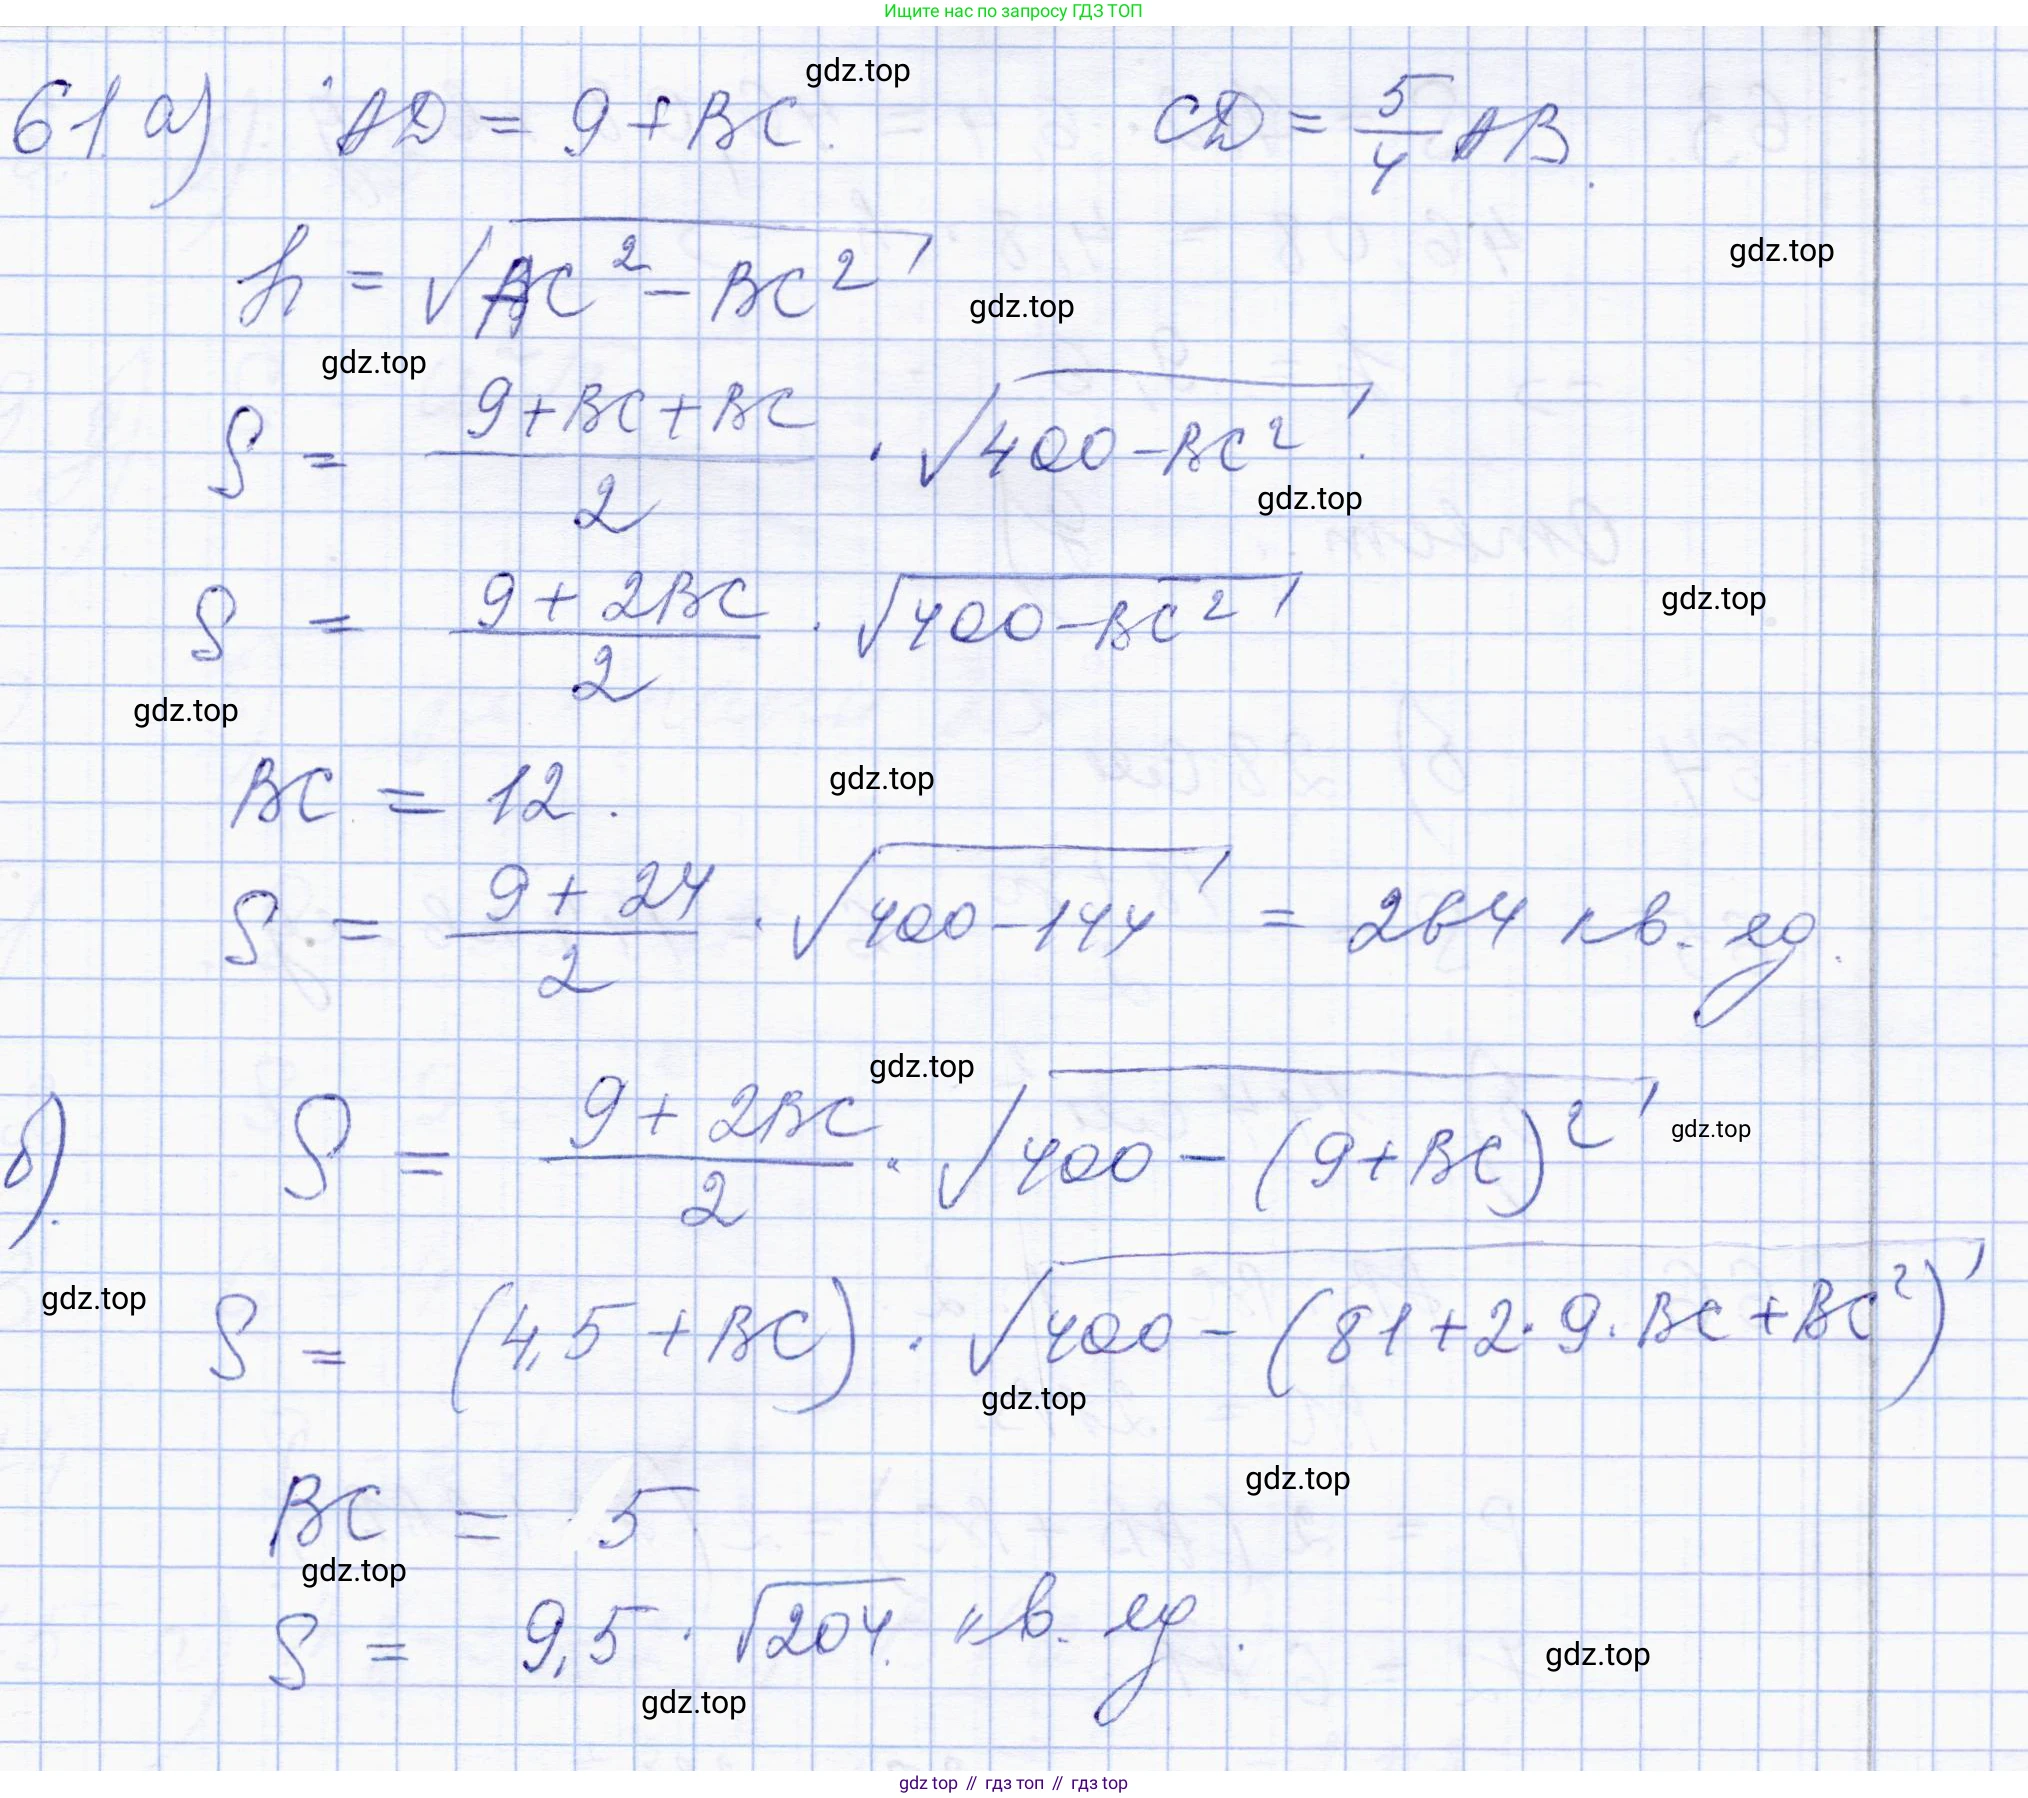 Ищите нас по запросу ГДЗ ТОП
gdz.top
61 а) AD = 9 + BC. CD = 5/4 AB.
gdz.top
h = √(AC² − BC²)
gdz.top
gdz.top
S = (9 + BC + BC)/2 · √(400 − BC²).
gdz.top
S = (9 + 2BC)/2 · √(400 − BC²)
gdz.top
gdz.top
BC = 12.
gdz.top
S = (9 + 24)/2 · √(400 − 144) = 264 кв. ед.
gdz.top
б). S = (9 + 2BC)/2 · √(400 − (9 + BC)²)
gdz.top
gdz.top
S = (4,5 + BC) · √(400 − (81 + 2 · 9 · BC + BC²))
gdz.top
gdz.top
BC = 5
gdz.top
S = 9,5 · √204 кв. ед.
gdz.top
gdz.top
gdz top // гдз топ // гдз top